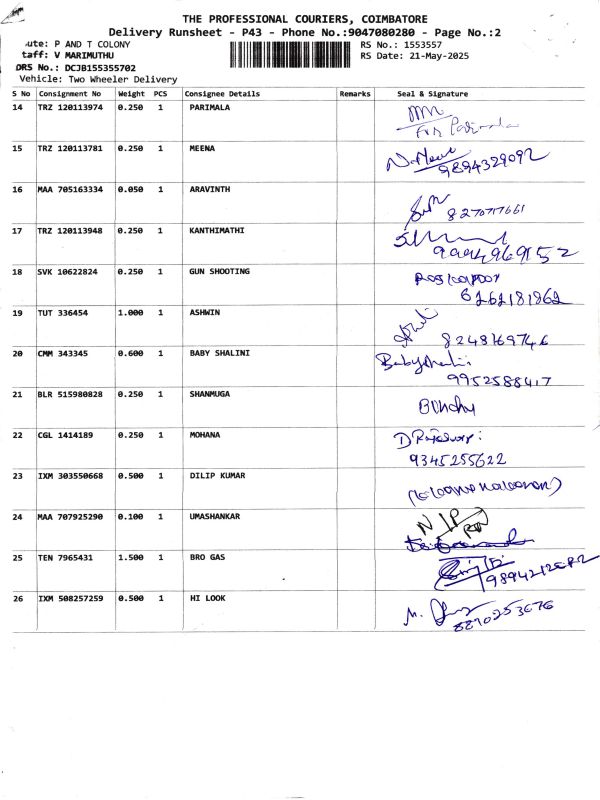 THE PROFESSIONAL COURIERS, COIMBATORE
Delivery Runsheet - P43 - Phone No.:9047080280 - Page No.:2
ute: P AND T COLONY RS No.: 1553557
taff: V MARIMUTHU RS Date: 21-May-2025
DRS No.: DCJB155355702
Vehicle: Two Wheeler Delivery
S No Consignment No Weight PCS Consignee Details Remarks Seal & Signature
14 TRZ 120113974 0.250 1 PARIMALA
15 TRZ 120113781 0.250 1 MEENA
9894329092
16 MAA 705163334 0.050 1 ARAVINTH
8270717661
17 TRZ 120113948 0.250 1 KANTHIMATHI
9994969152
18 SVK 10622824 0.250 1 GUN SHOOTING
6262181962
19 TUT 336454 1.000 1 ASHWIN
8248769746
20 CMM 343345 0.600 1 BABY SHALINI
Babyshalini
9952588417
21 BLR 515980828 0.250 1 SHANMUGA
22 CGL 1414189 0.250 1 MOHANA
9345255622
23 IXM 303550668 0.500 1 DILIP KUMAR
24 MAA 707925290 0.100 1 UMASHANKAR
25 TEN 7965431 1.500 1 BRO GAS
26 IXM 508257259 0.500 1 HI LOOK
8870253676